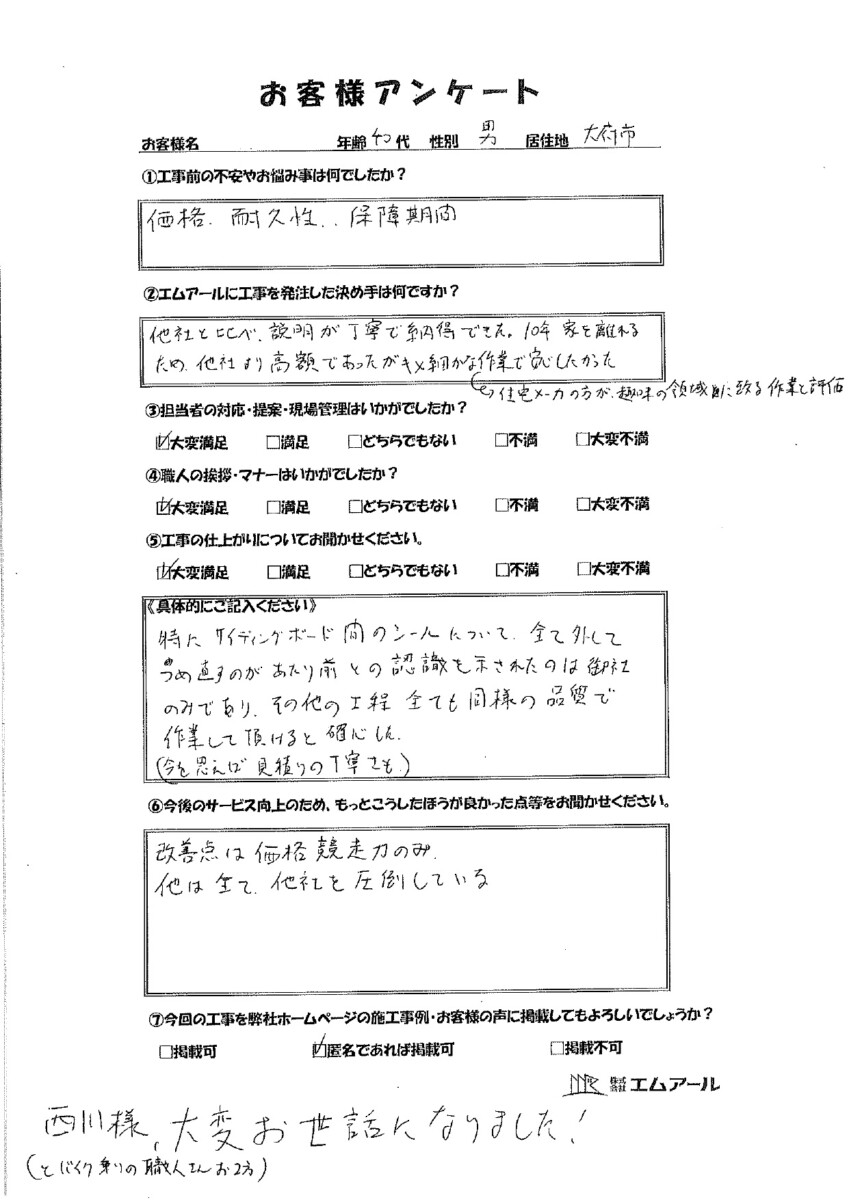 お客様アンケート
お客様名 年齢 40代 性別 男 居住地 大府市
①工事前の不安やお悩み事は何でしたか？
価格、耐久性、、保障期間
②エムアールに工事を発注した決め手は何ですか？
他社と比べ、説明が丁寧で納得できた。10年 家を離れる
ため、他社より高額であったがキメ細かな作業で安心したかった
→住宅メーカの方が、趣味の領域に致る作業と評価
③担当者の対応・提案・現場管理はいかがでしたか？
☑大変満足 □満足 □どちらでもない □不満 □大変不満
④職人の挨拶・マナーはいかがでしたか？
☑大変満足 □満足 □どちらでもない □不満 □大変不満
⑤工事の仕上がりについてお聞かせください。
☑大変満足 □満足 □どちらでもない □不満 □大変不満
《具体的にご記入ください》
特に サイディングボード間のシールについて、全て外して
うめ直すのがあたり前との認識を示されたのは御社
のみであり、その他の工程 全ても同様の品質で
作業して頂けると確心した。
(今を思えば 見積りの丁寧さも。)
⑥今後のサービス向上のため、もっとこうしたほうが良かった点等をお聞かせください。
改善点は価格競走力のみ、
他は全て、他社を圧倒している
⑦今回の工事を弊社ホームページの施工事例・お客様の声に掲載してもよろしいでしょうか？
□掲載可 ☑匿名であれば掲載可 □掲載不可
MR 株式会社 エムアール
西川様、大変お世話になりました！
(とバイク乗りの職人さんお2方)